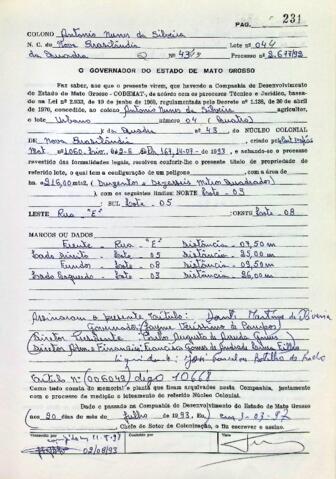 PAG. 231
COLONO Antônio Nunes da Silveira
N. C. de Nova Brasilândia Lote nº 044
da Quadra Nº 43 Processo nº 2.677/92
O GOVERNADOR DO ESTADO DE MATO GROSSO
Faz saber, aos que o presente virem, que havendo a Companhia de Desenvolvimento
do Estado de Mato Grosso - CODEMAT, de acôrdo com os pareceres Técnico e Jurídico, basea-
do na Lei nº 2.933, de 19 de junho de 1968, regulamentada pelo Decreto nº 1.138, de 30 de abril
de 1970, concedido, ao colono Antônio Nunes da Silveira
agricultor,
o lote Urbano número 04 (Quatro)
da Quadra nº 43. DO NÚCLEO COLONIAL
DE Nova Brasilândia, criado pela
Mat. nº 1060. 14-07-1993, e achando-se o processo
revestido das formalidades legais, resolveu conferir-lhe o presente título de propriedade
do referido lote, o qual tem a configuração de um polígono com a área de
ha. 216,00 mts2 (Duzentos e Dezesseis Metros Quadrados)
com os seguintes limites: NORTE Lote - 03
SUL Lote - 05
LESTE Rua "E" OESTE Lote - 08
MARCOS OU DADOS
Frente - Rua "E" Distância - 07,50 m
Lado Direito - Lote - 05 Distância - 25,00 m
Fundos - Lote - 08 Distância - 09,50 m
Lado Esquerdo - Lote - 03 Distância - 26,00 m
Assinaram o presente título: Dante Martins de Oliveira
Governador, Jayme Veríssimo de Campos
Diretor Presidente - Carlos Augusto de Arruda Gomes
(Diretor Adm. e Financeiro: Francisco Gomes de Andrade Lima Filho
Liquidante: José Gonçalves Botelho do Prado
Título Nº (006049) digo 10668
Tudo como consta do memorial e planta que ficam arquivados nesta Companhia, juntamente
com o processo de medição e loteamento do referido Núcleo Colonial.
Dado e passado na Companhia de Desenvolvimento do Estado de Mato Grosso
(aos 20 dias do mês de Julho de 1993. Eu) em 3-03-97
Chefe do Setor de Colonização, o fiz escrever e assino.
02/08/93